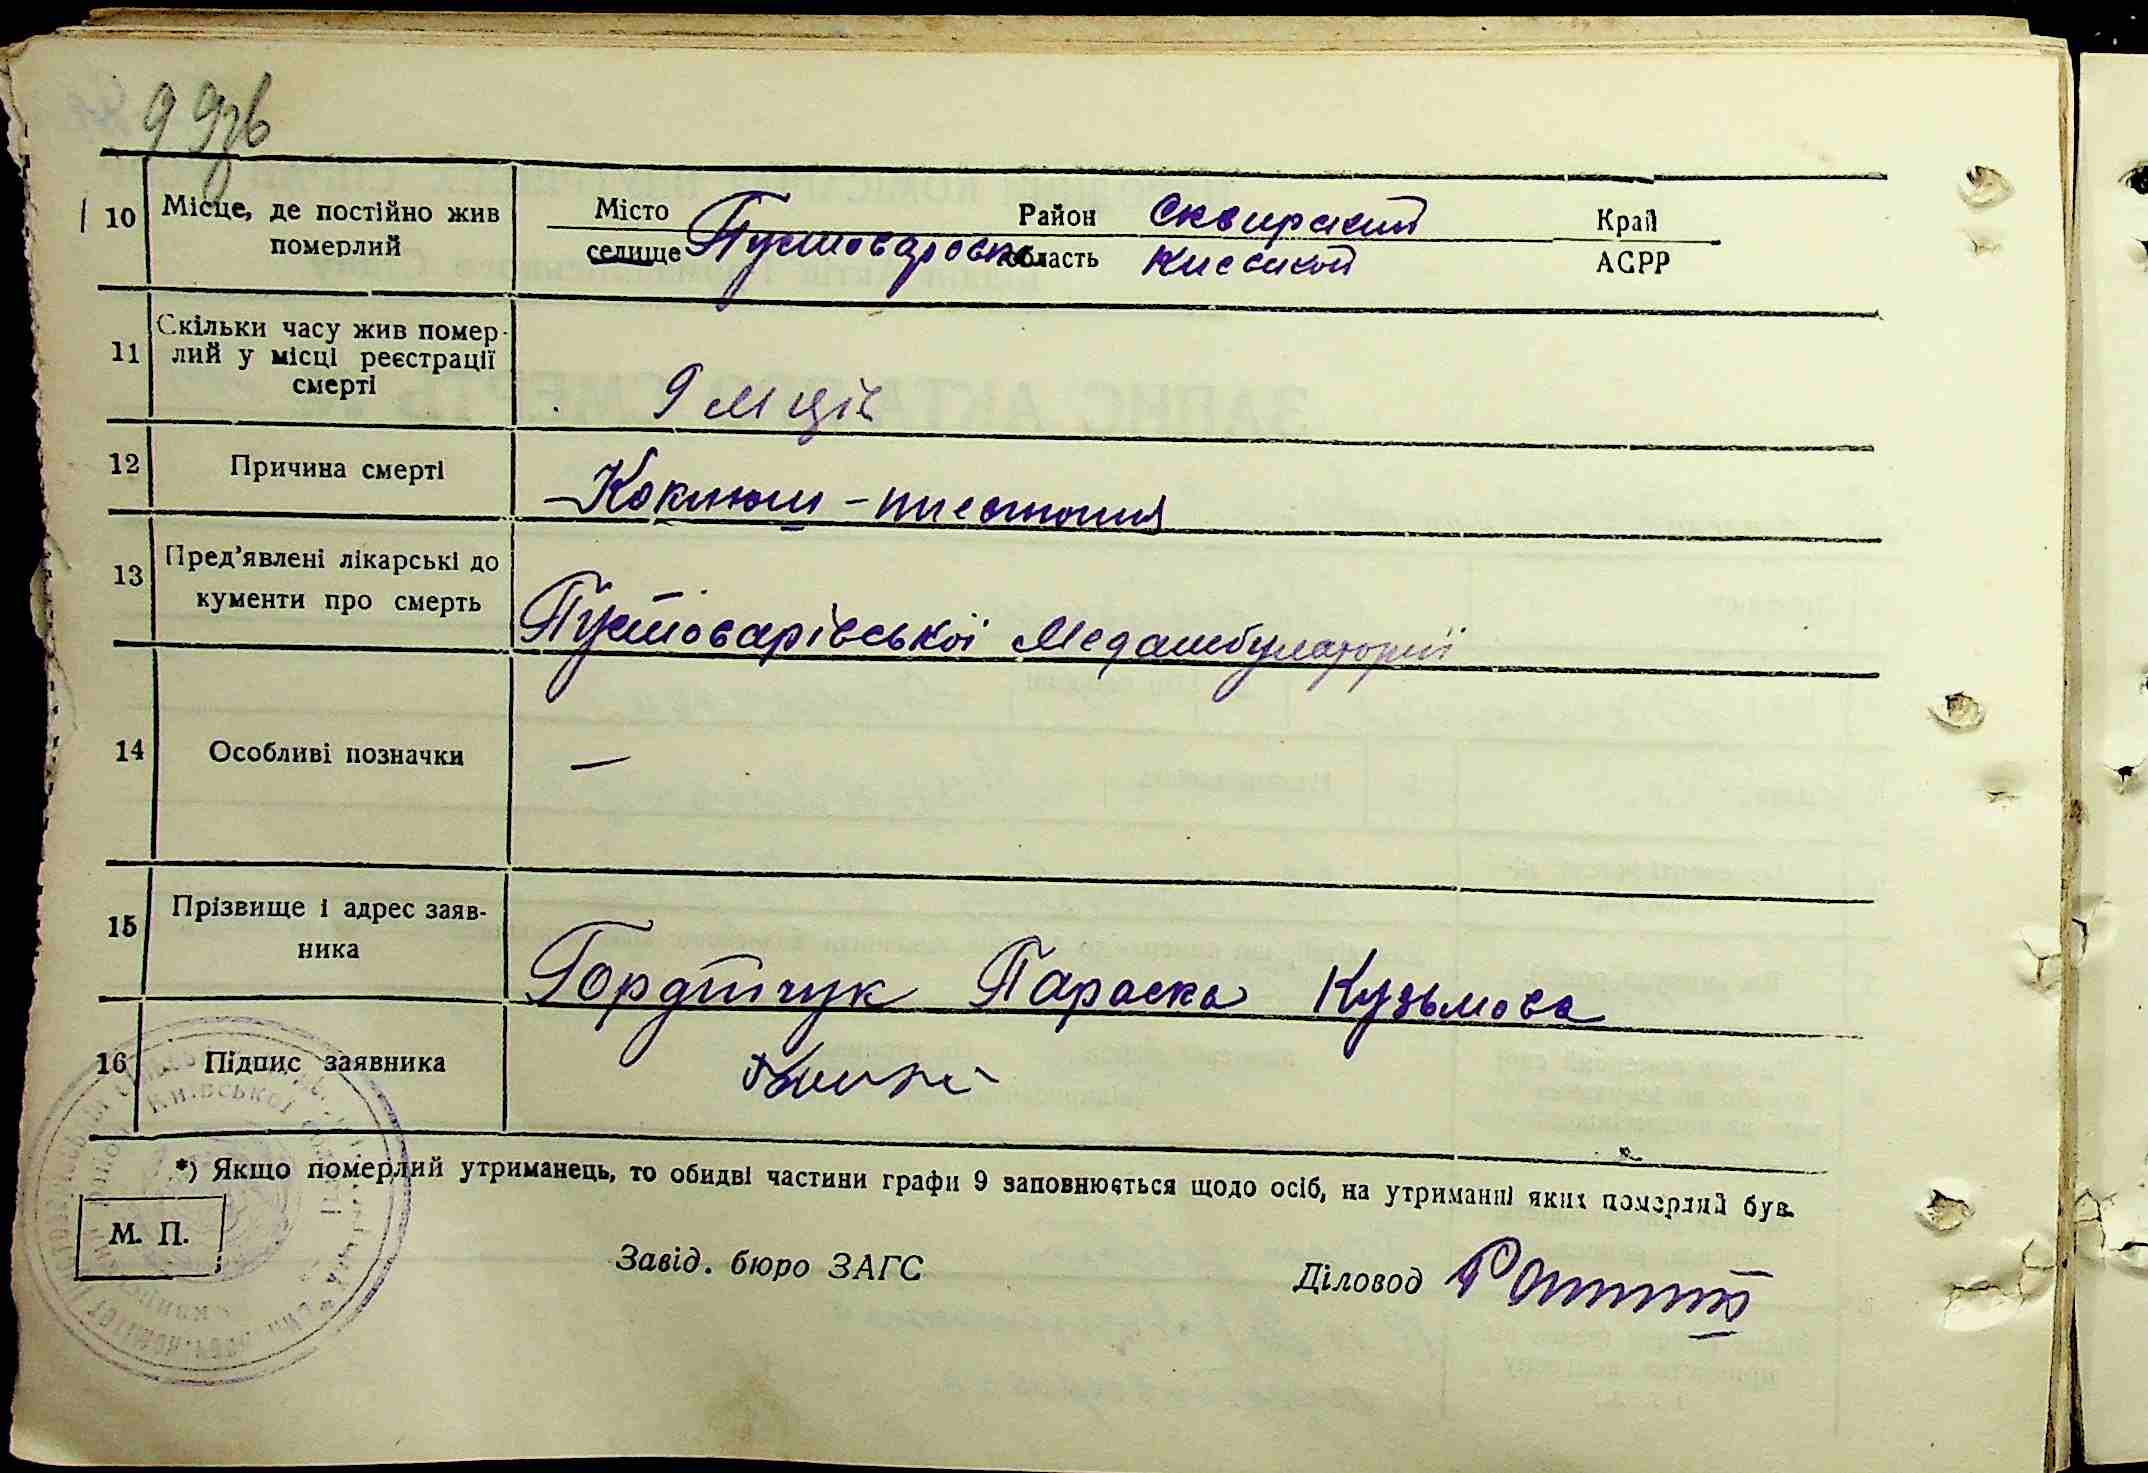 99зв
10 Місце, де постійно жив померлий
Місто Пустоварівка Район Сквирский Край
селище область Киевской АСРР
11 Скільки часу жив помер-
лий у місці реєстрації
смерті
9 м-ців
12 Причина смерті
Коклюш - пневмония
13 Пред'явлені лікарські до
кументи про смерть
Пустоварівської Медамбулаторії
14 Особливі позначки —
15 Прізвище і адрес заяв-
ника
Гордійчук Параска Кузьмова
16 Підпис заявника
*) Якщо померлий утриманець, то обидві частини графи 9 заповнюється щодо осіб, на утриманні яких померлий був.
М. П.
Завід. бюро ЗАГС
Діловод